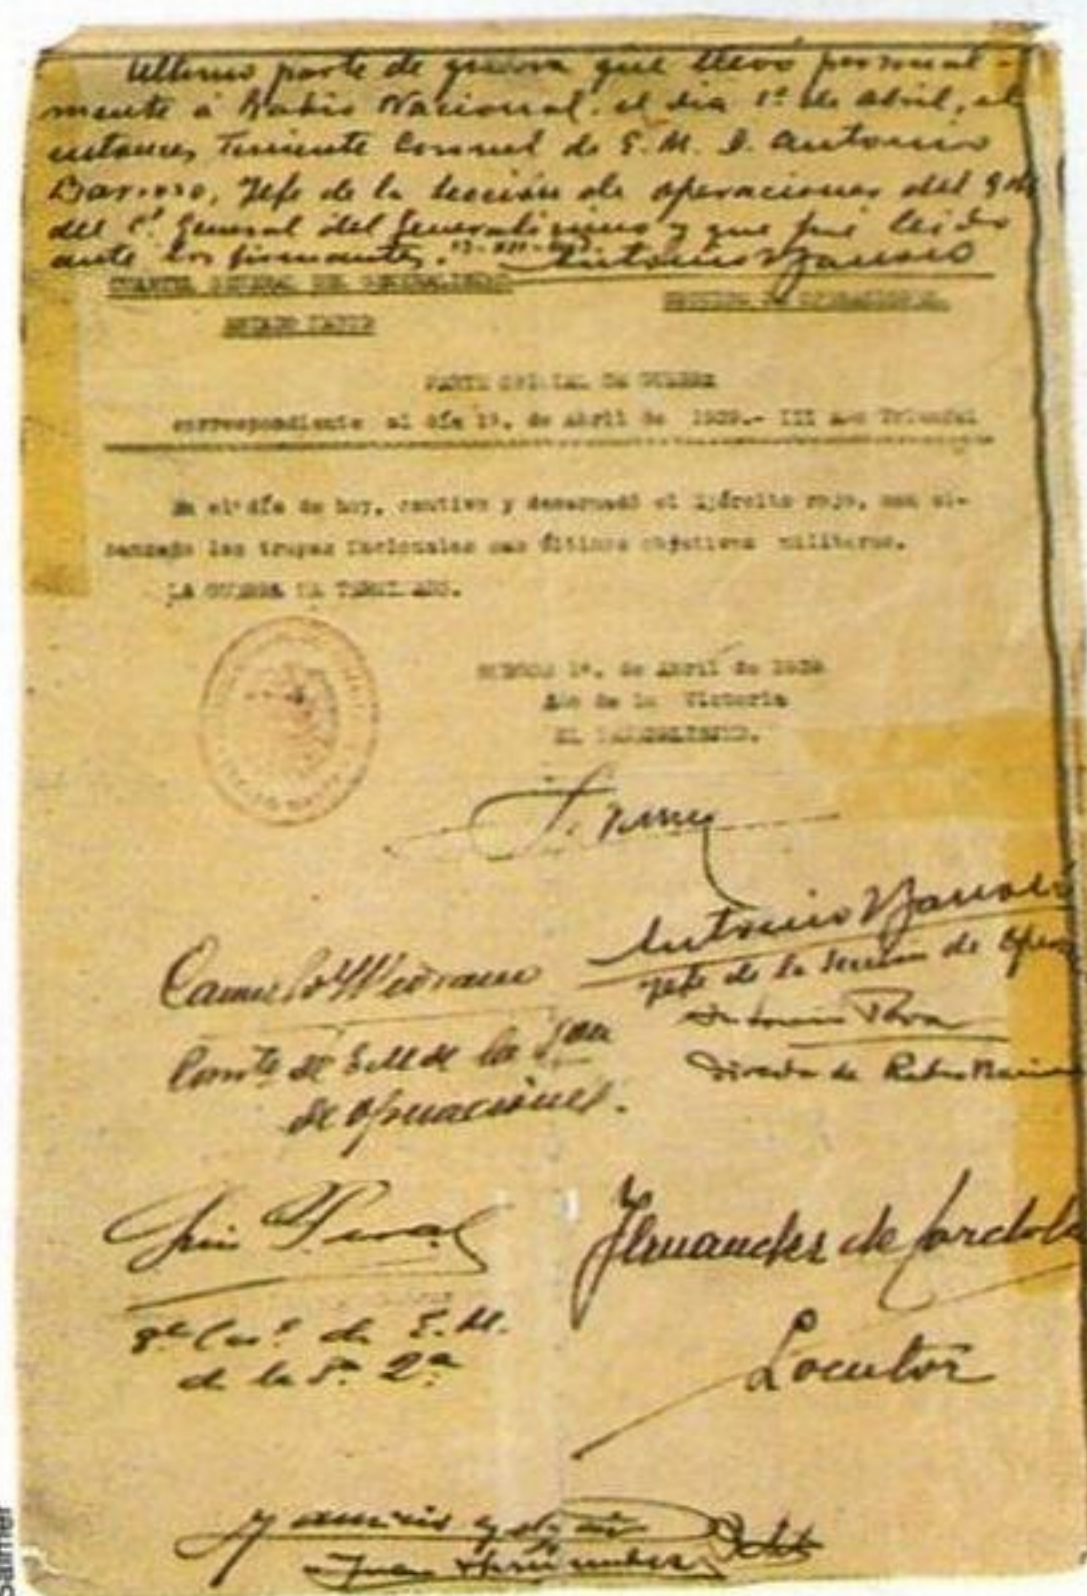 Ultimo parte de guerra que llevó personal-
mente á Radio Nacional. el dia 1º de Abril, el
entonces Teniente Coronel de E.M. D. Antonio
Barroso, Jefe de la Sección de operaciones del
del General del Generalisimo y que fué leido
ante los firmantes. Antonio Barroso
CUARTEL GENERAL DEL GENERALISIMO
SECCION DE OPERACIONES.
ESTADO MAYOR
PARTE OFICIAL DE GUERRA
correspondiente al día 1º. de Abril de 1939.- III Año Triunfal
En el día de hoy, cautivo y desarmado el Ejército rojo, han al-
canzado las tropas Nacionales sus últimos objetivos militares.
LA GUERRA HA TERMINADO.
BURGOS 1º. de Abril de 1939
Año de la Victoria
EL GENERALISIMO.
Antonio Barroso
Jefe de la Seccion de
Camilo
Comte de E.M de la
de Operaciones.
Director de Radio
Luis
de E.M.
de la 2ª
Fernandez de Cordoba
Locutor
Juan Hernandez
Salmer